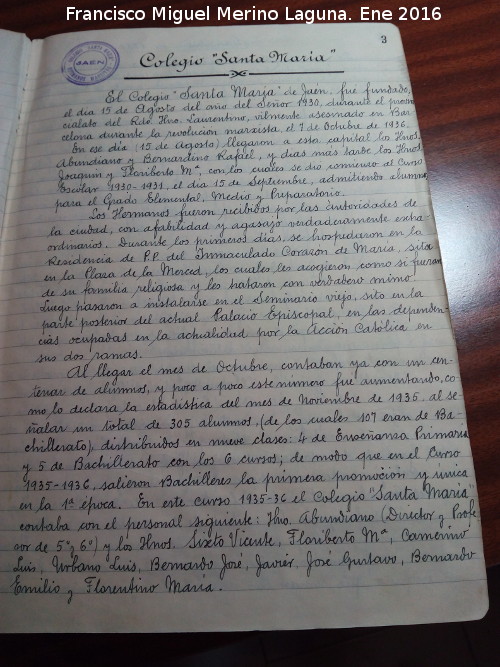 Francisco Miguel Merino Laguna. Ene 2016
3
JAÉN
Colegio "Santa María"
El Colegio "Santa María" de Jaén, fue fundado,
el día 15 de Agosto del año del Señor 1930, durante el provin
cialato del Rdo. Hno. Laurentino, vilmente asesinado en Bar
celona durante la revolución marxista, el 7 de Octubre de 1936.
En ese día (15 de Agosto) llegaron a esta capital los Hnos.
Abundiano y Bernardino Rafael, y días más tarde los Hnos.
Joaquín y Floriberto Mª, con los cuales se dio comienzo al Curso
Escolar 1930-1931, el día 15 de Septiembre, admitiendo alumnos
para el Grado Elemental, Medio y Preparatorio.
Los Hermanos fueron recibidos por las Autoridades de
la ciudad, con afabilidad y agasajo verdaderamente extra-
ordinarios. Durante los primeros días, se hospedaron en la
Residencia de P.P. del Inmaculado Corazón de María, sita
en la Plaza de la Merced, los cuales les acogieron como si fueran
de su familia religiosa y les trataron con verdadero mimo.
Luego pasaron a instalarse en el Seminario viejo, sito en la
parte posterior del actual Palacio Episcopal, en las dependen-
cias ocupadas en la actualidad por la Acción Católica en
sus dos ramas.
Al llegar el mes de Octubre, contaban ya con un cen-
tenar de alumnos, y poco a poco este número fue aumentando, co-
mo lo declara la estadística del mes de Noviembre de 1935, al se-
ñalar un total de 305 alumnos, (de los cuales 107 eran de Ba-
chillerato), distribuidos en nueve clases: 4 de Enseñanza Primaria
y 5 de Bachillerato con los 6 cursos; de modo que en el Curso
1935-1936, salieron Bachilleres la primera promoción y única
en la 1ª época. En este curso 1935-36 el Colegio "Santa María",
contaba con el personal siguiente: Hno. Abundiano (Director y Profe-
sor de 5º y 6º) y los Hnos. Sixto Vicente, Floriberto Mª, Camerino
Luis, Urbano Luis, Bernardo José, Javier José Gustavo, Bernardo
Emilio y Florentino María.